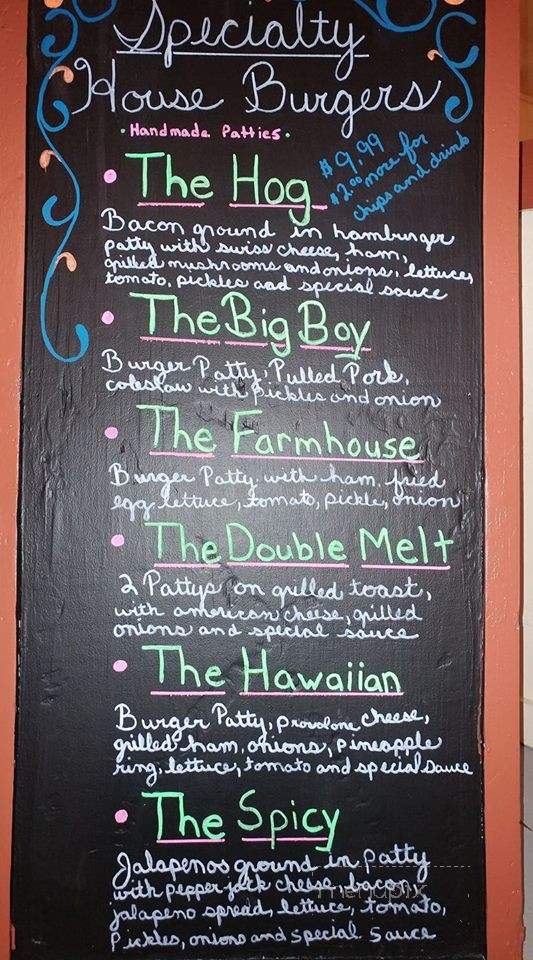 Specialty
House Burgers
• Handmade Patties •
• The Hog
$9.99
$2.00 more for
chips and drink
Bacon ground in hamburger
patty with swiss cheese, ham,
grilled mushrooms and onions, lettuce,
tomato, pickles and special sauce
• The Big Boy
Burger Patty, Pulled Pork,
coleslaw with pickles and onion
• The Farmhouse
Burger Patty with ham, fried
egg, lettuce, tomato, pickle, onion
• The Double Melt
2 Pattys on grilled toast,
with american cheese, grilled
onions and special sauce
• The Hawaiian
Burger Patty, provolone cheese,
grilled ham, onions, pineapple
ring, lettuce, tomato and special sauce
• The Spicy
Jalapenos ground in patty
with pepper jack cheese, bacon,
menupix
jalapeno spread, lettuce, tomato,
Pickles, onions and special sauce